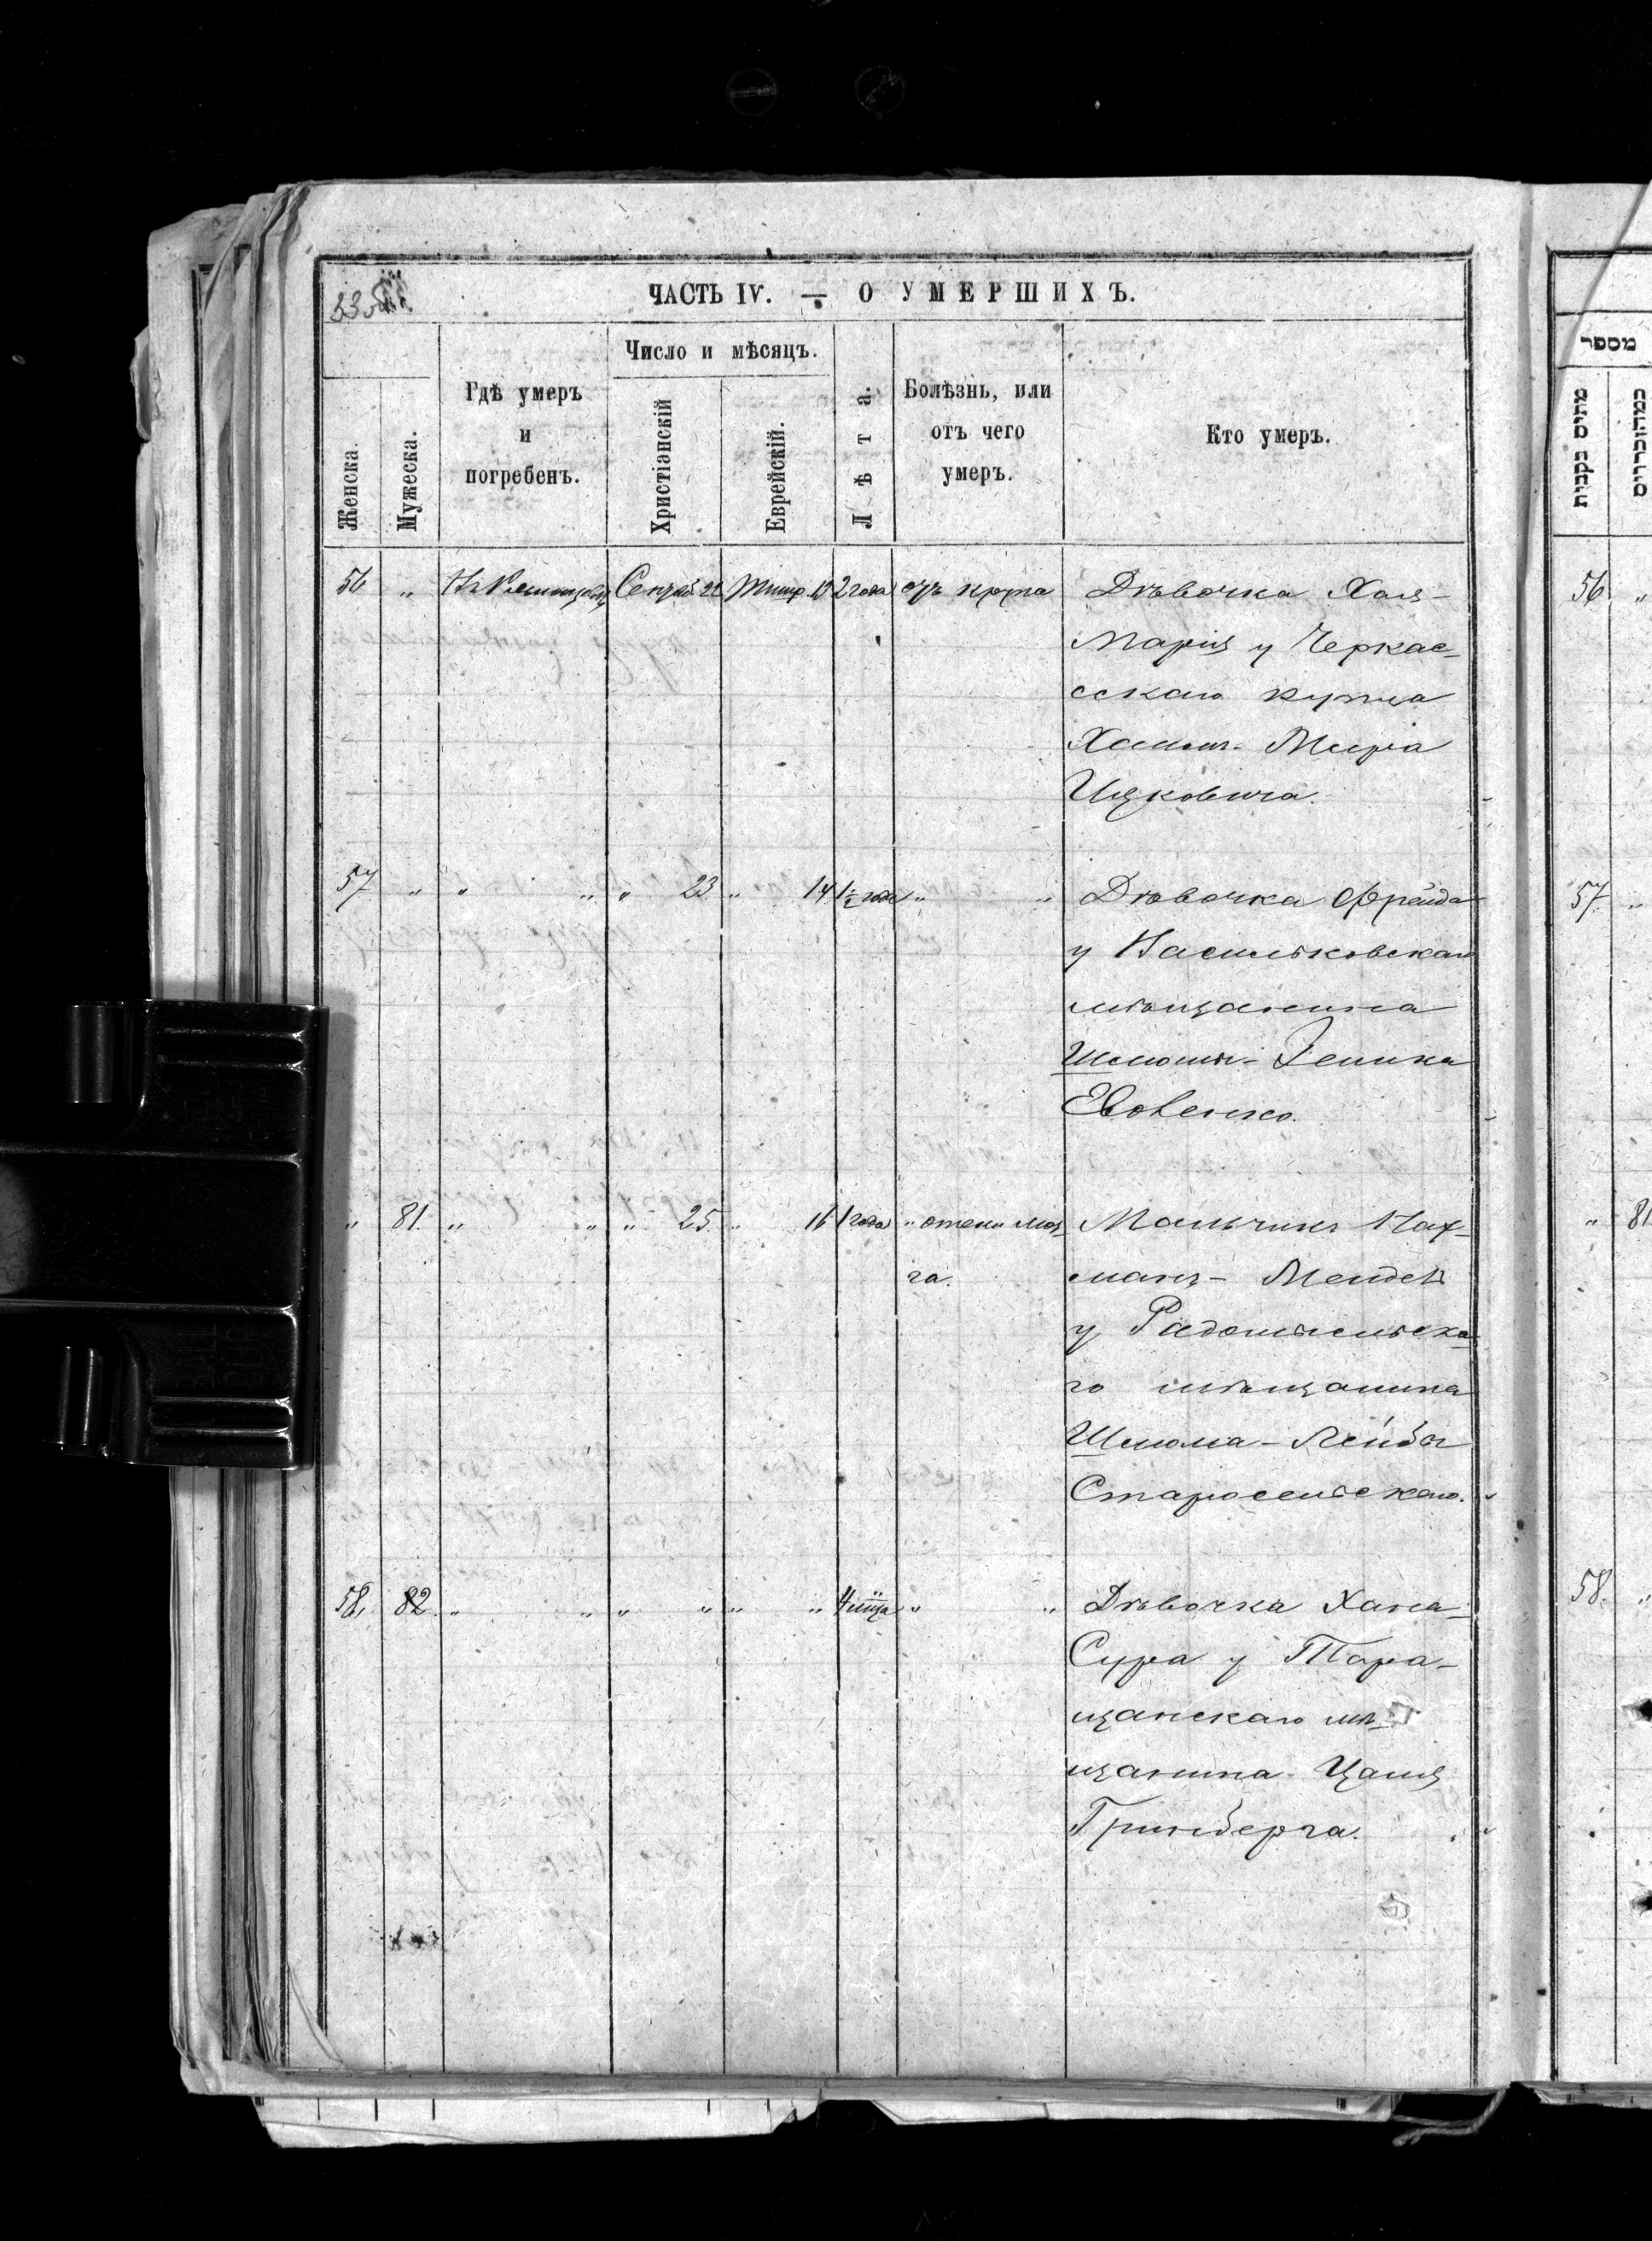 335
ЧАСТЬ IV. — О УМЕРШИХЪ.
Женска.
Мужеска.
Гдѣ умеръ
и
погребенъ.
Число и мѣсяцъ.
Христіанскій
Еврейскій.
Лѣта.
Болѣзнь, или
отъ чего
умеръ.
Кто умеръ.
56 „ Сентяб. 22 Тишр. 13 2 года отъ крупа Дѣвочка Хая-
Марія у Черкас-
скаго купца
Хаимъ-Меера
Ицковича.
57 „ „ „ „ 23 „ 14 1½ года „ „ Дѣвочка Фрейда
у Васильковскаго
мѣщанина
Шлиомы-Зелика
Евовенко.
„ 81. „ „ „ 25. „ 16 1 года „ отеки моз-
га.
Мальчикъ Нах-
манъ-Мендель
у Радомысльска-
го мѣщанина
Шлиома-Лейбы
Старосельскаго.
58. 82. „ „ „ „ „ „ 4 мѣца „ „ Дѣвочка Хана-
Сура у Тара-
щанскаго мѣ-
щанина
Гринберга.
מספר
מתים נקבות
56 „
57 „
„ 81
58. „